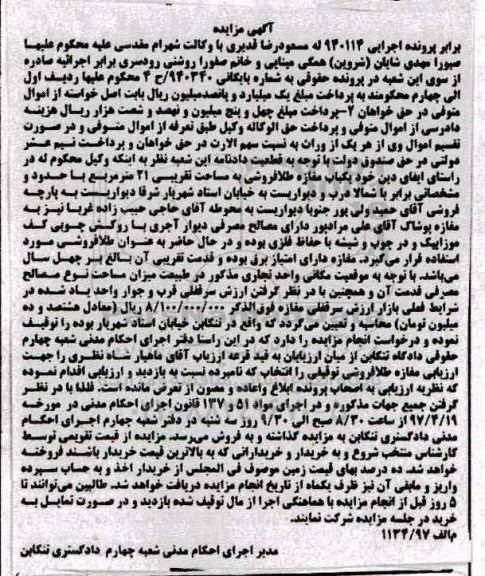 آگهی مزایده
برابر پرونده اجرایی ۹۴۰۱۱۴ له مسعودرضا قدیری با وکالت شهرام مقدسی علیه محکوم علیها
صبورا مهدی شایان (شروین) همگی مینایی و خانم صفورا روشنی رودسری برابر اجرائیه صادره
از سوی این شعبه در پرونده حقوقی به شماره بایگانی ۹۴۰۳۴۰/ح ۴ محکوم علیها ردیف اول
الی چهارم محکومند به پرداخت مبلغ یک میلیارد و پانصدمیلیون ریال بابت اصل خواسته از اموال
متوفی در حق خواهان ۲-پرداخت مبلغ چهل و پنج میلیون و نهصد و شصت هزار ریال هزینه
دادرسی از اموال متوفی و پرداخت حق الوکاله وکیل طبق تعرفه از اموال متوفی و در صورت
تقسیم اموال وی از هر یک از وراث به نسبت سهم الارث در حق خواهان و پرداخت نیم عشر
دولتی در حق صندوق دولت با توجه به قطعیت دادنامه این شعبه نظر به اینکه وکیل محکوم له در
راستای ایفای دین خود یکباب مغازه طلافروشی به مساحت تقریبی ۲۱ مترمربع با حدود و
مشخصاتی برابر با شمالا درب و دیواریست به خیابان استاد شهریار شرقا دیواریست به پارچه
فروشی آقای حمید ولی پور جنوبا دیواریست به محوطه آقای حاجی حبیب زاده غربا نیز به
مغازه پوشاک آقای علی مرادپور دارای مصالح مصرفی دیوار آجری با روکش چوبی کف
موزاییک و در چوب و شیشه با حفاظ فلزی بوده و در حال حاضر به عنوان طلافروشی مورد
استفاده قرار می‌گیرد. مغازه دارای امتیاز برق بوده و قدمت تقریبی آن بالغ بر چهل سال
می‌باشد. با توجه به موقعیت مکانی واحد تجاری مذکور در طبیعت میزان مساحت نوع مصالح
مصرفی قدمت آن و همچنین با در نظر گرفتن ارزش سرقفلی قرب و جوار واحد یاد شده در
شرایط فعلی بازار ارزش سرقفلی مغازه فوق‌الذکر ۸/۱۰۰/۰۰۰/۰۰۰ ریال (معادل هشتصد و ده
میلیون تومان) محاسبه و تعیین می‌گردد که واقع در تنکابن خیابان استاد شهریار بوده را توقیف
نموده و درخواست انجام مزایده را دارد که در این راستا دفتر اجرای احکام مدنی شعبه چهارم
حقوقی دادگاه تنکابن از میان ارزیابان به قید قرعه ارزیاب آقای ماهیار شاه نظری را جهت
ارزیابی مغازه طلافروشی توقیفی را انتخاب که نامبرده نسبت به بازدید و ارزیابی اقدام نموده
که نظریه ارزیابی به اصحاب پرونده ابلاغ واعاده و مصون از تعرض مانده است. فلذا با در نظر
گرفتن جمیع جهات مذکوره و در اجرای مواد ۵۱ و ۱۳۷ قانون اجرای احکام مدنی در مورخه
۹۷/۴/۱۹ از ساعت ۸/۳۰ صبح الی ۹/۳۰ روز سه شنبه در دفتر شعبه چهارم اجرای احکام
مدنی دادگستری تنکابن به مزایده گذاشته و به فروش می‌رسد. مزایده از قیمت تقویمی توسط
کارشناس منتخب شروع و به خریدار و خریدارانی که به بالاترین قیمت خریدار باشند فروخته
خواهد شد. ده درصد بهای قیمت زمین موصوف فی المجلس از خریدار اخذ و به حساب سپرده
واریز و مابقی آن نیز ظرف یکماه از تاریخ انجام مزایده دریافت خواهد شد. طالبین می‌توانند تا
۵ روز قبل از انجام مزایده با هماهنگی اجرا از مال توقیف شده بازدید و در صورت تمایل به
خرید در جلسه مزایده شرکت نمایند.
م‌الف ۱۱۳۴/۹۷
مدیر اجرای احکام مدنی شعبه چهارم دادگستری تنکابن